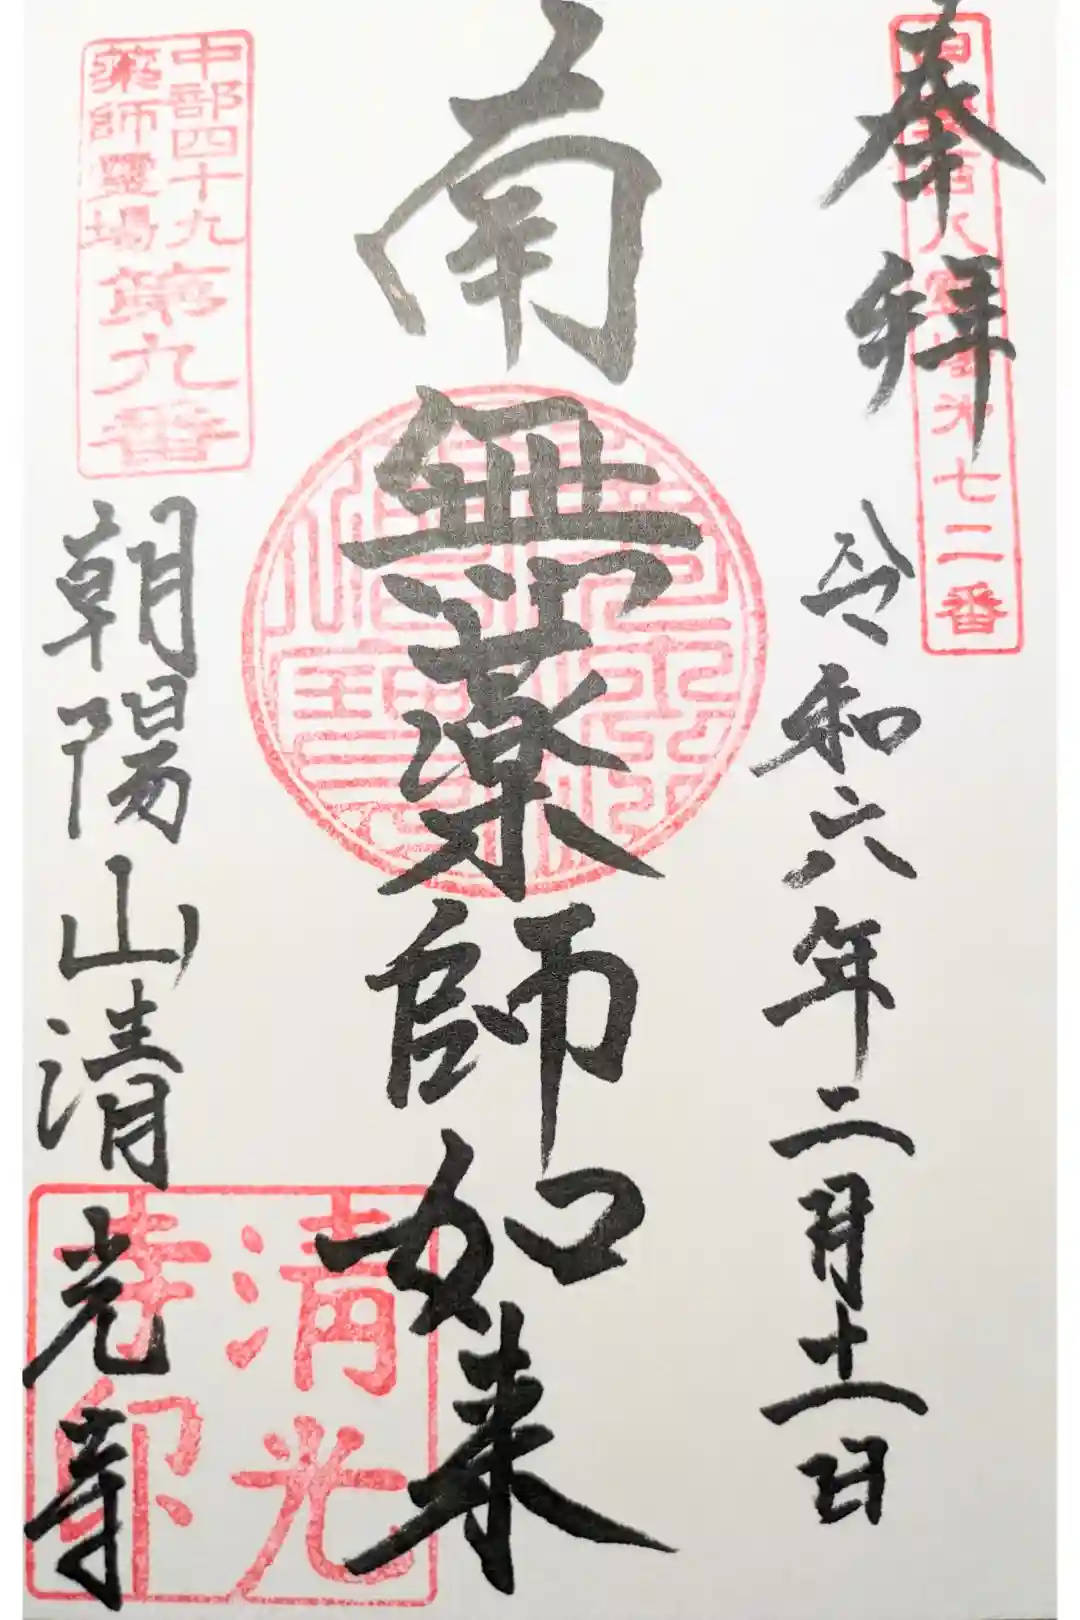 奉拝
七二番
令和六年二月十一日
南無薬師如来
中部四十九
薬師霊場
第九番
朝陽山清光寺
清光
寺印